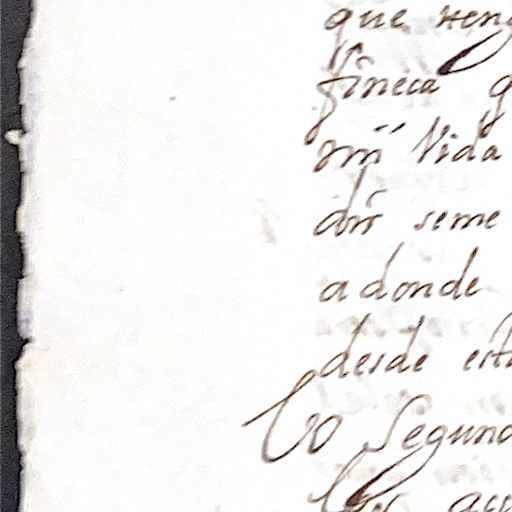 que teng
fineca q
mi Vida
dir seme
adonde
desde est
Lo Segund